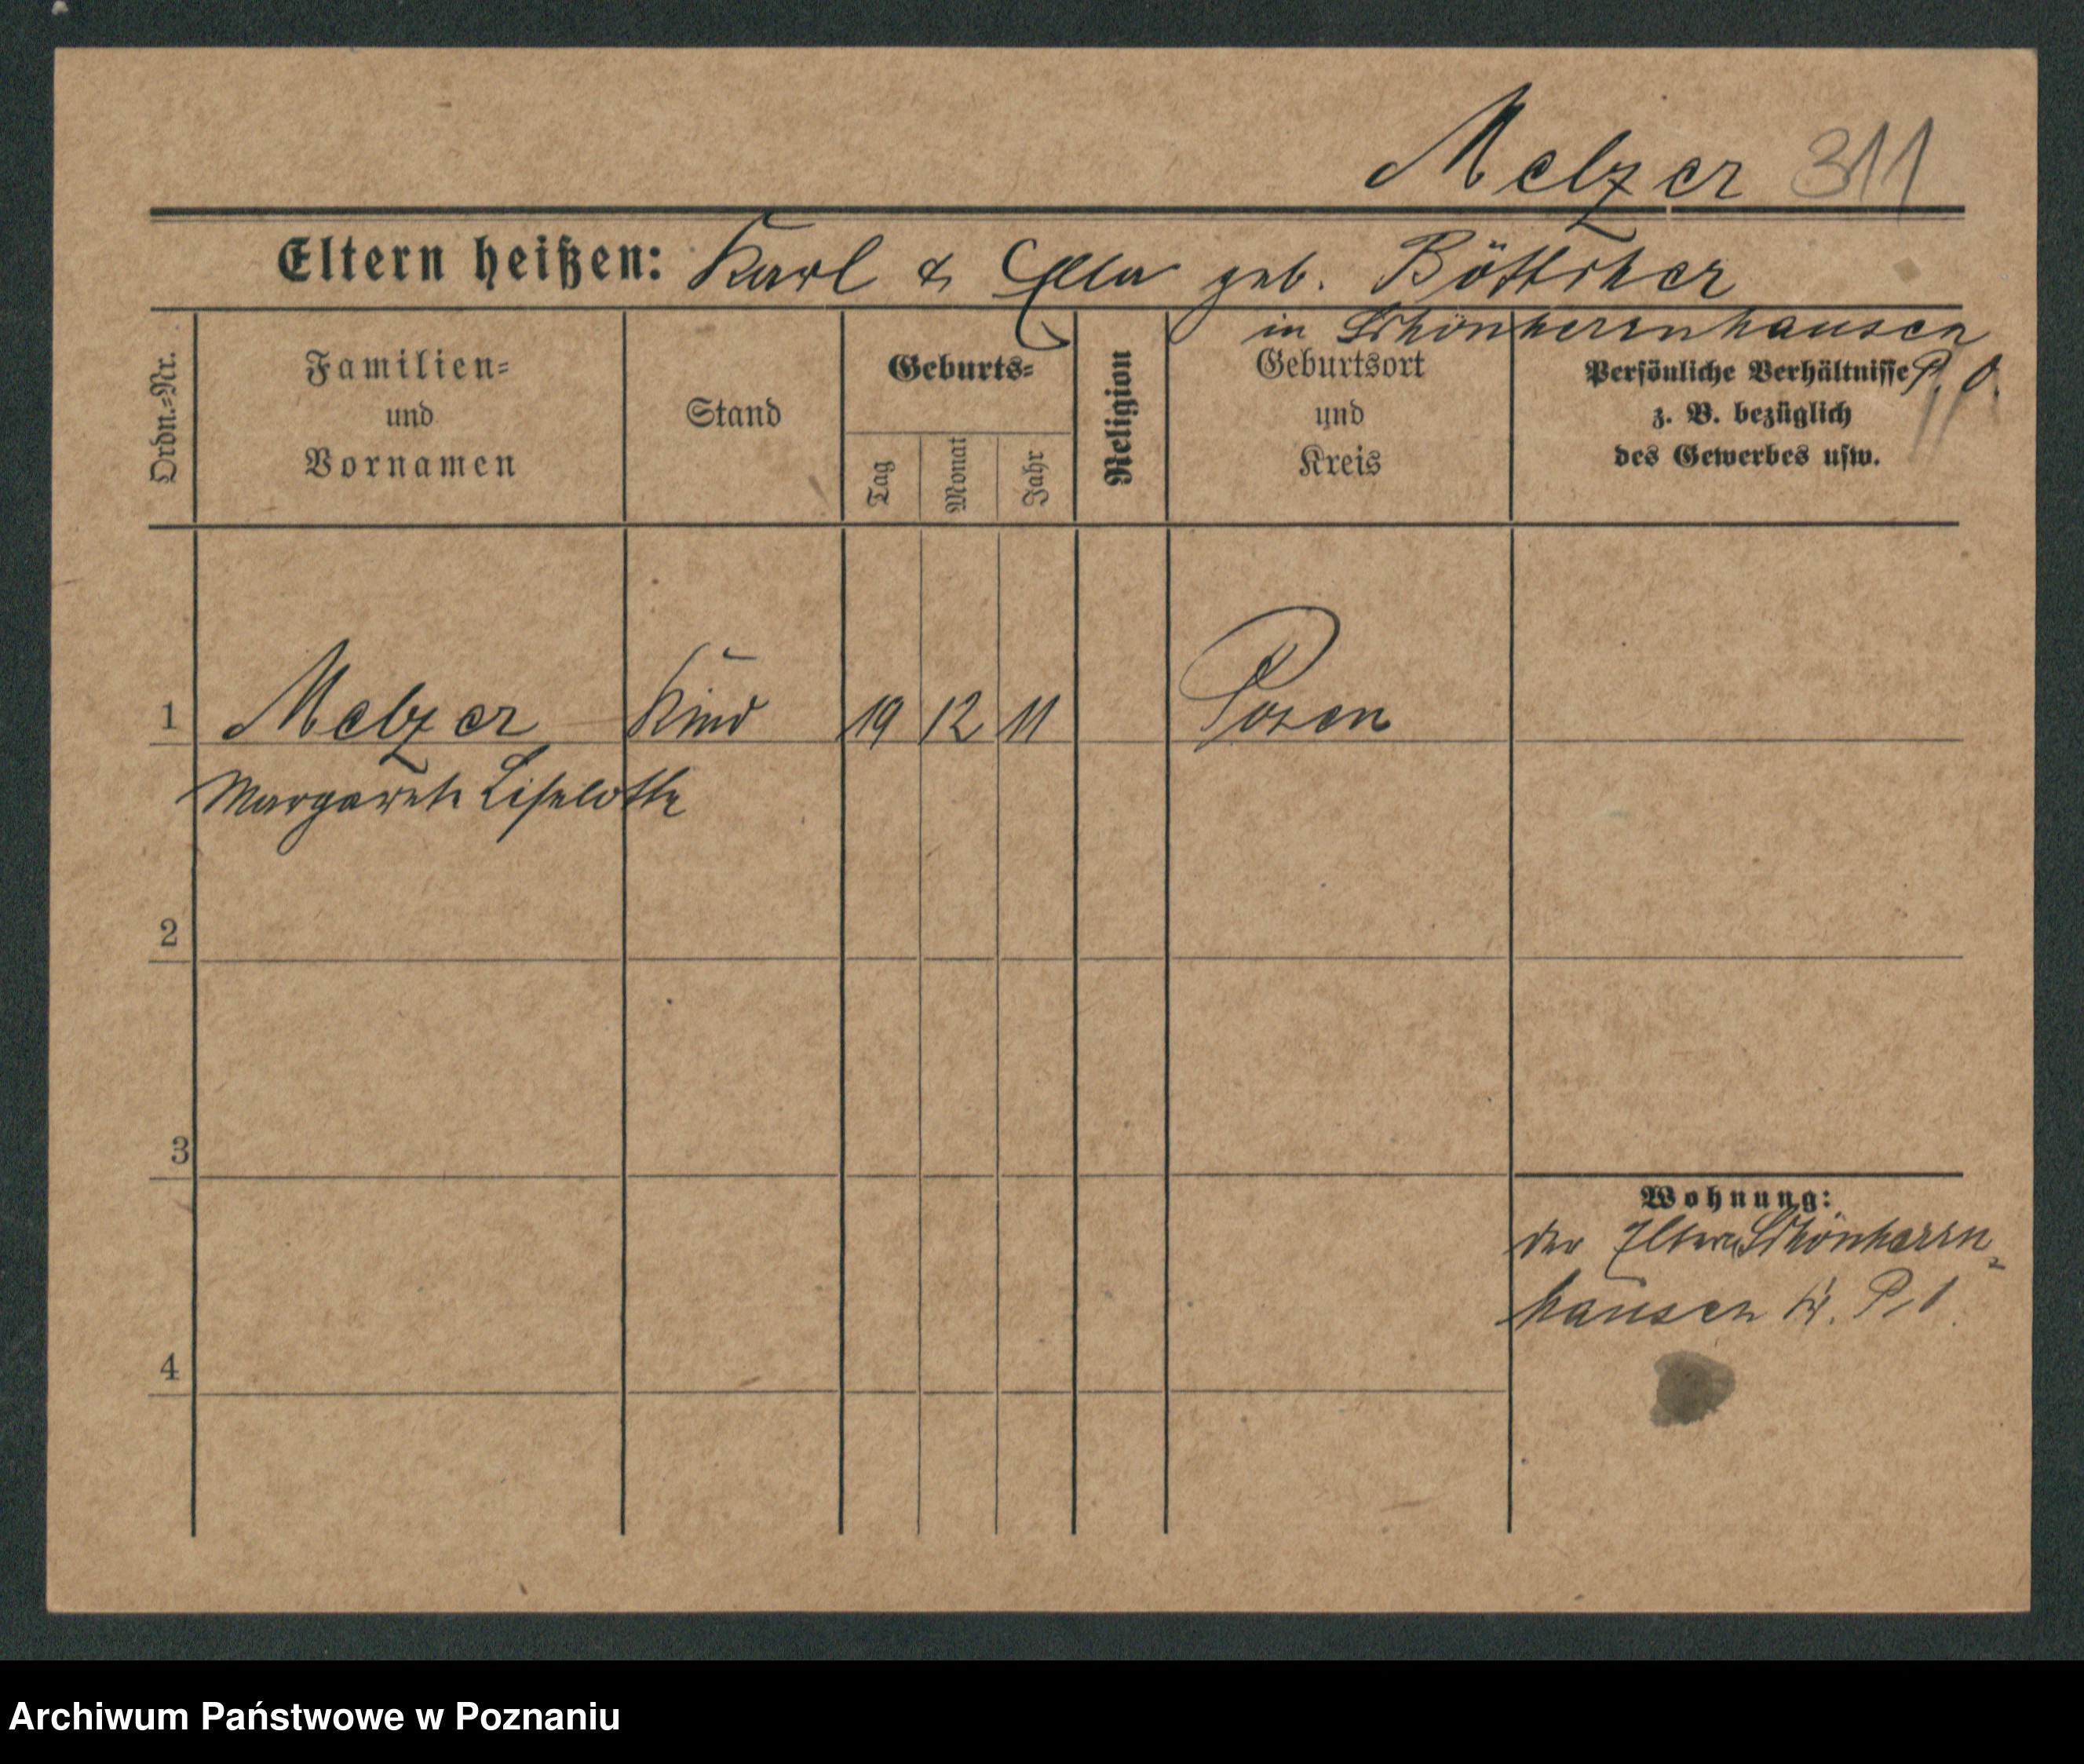 Melzer 311
Eltern heißen: Karl & Ella geb. Böttcher
in Schönherrnhausen
P. O.
Ordn.-Nr.
Familien-
und
Vornamen
Stand
Geburts-
Tag
Monat
Jahr
Religion
Geburtsort
und
Kreis
Persönliche Verhältnisse
z. B. bezüglich
des Gewerbes usw.
1 Melzer Kind 19 12 11 Posen
Margarete Liselotte
2
3
Wohnung:
der Eltern Schönherrn-
hausen Kr. P. O.
4
Archiwum Państwowe w Poznaniu